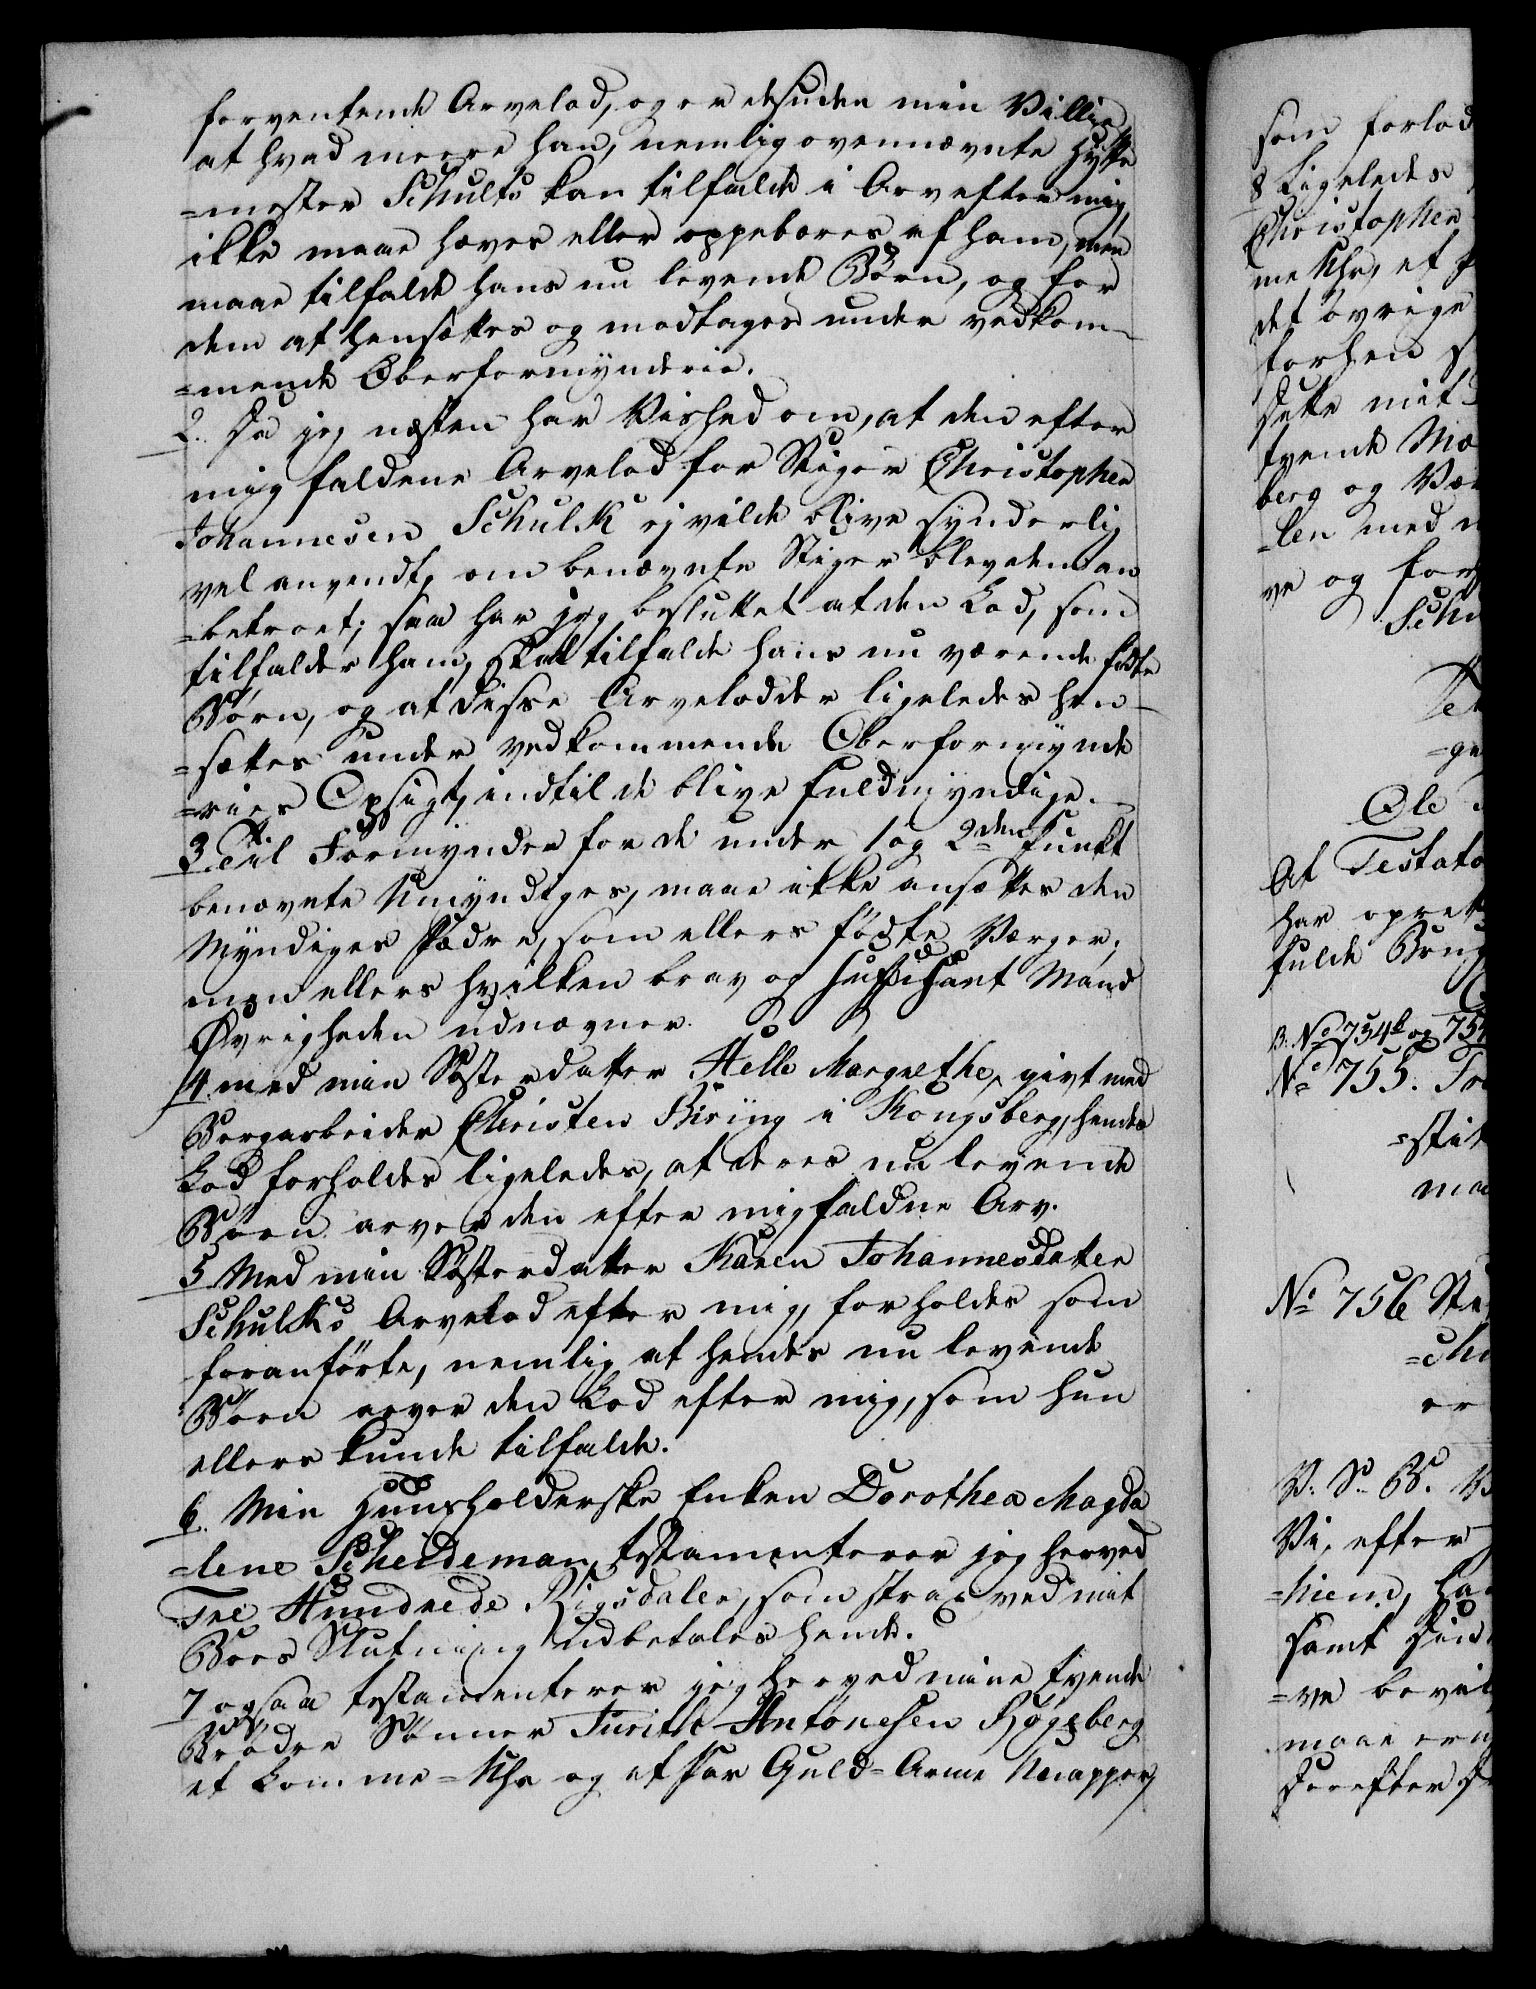 forventende Arvelod, og er desuden min Villie,
at hvad meere han, nemlig ovennævnte Hytte
=mester Schults kan tilfalde i Arv efter mig,
ikke maae hæves eller oppebæres af ham, men
maae tilfalde hans nu levende Børn, og for
dem at hensættes og modtages under vedkom-
=mende Oberformynderie.
2. Da jeg næsten har Vished om, at den efter
mig faldene Arvelod for Stiger Christopher
Johannesen Schulk ej vilde blive synderlig
vel anvendt, om benævnte Stiger blev den an
=betroet; saa har jeg besluttet at den Lod, som
tilfalder ham, skal tilfalde hans nu værende fødte
Børn, og at disse Arvelodder ligeledes hen-
=sættes under vedkommende Oberformynde
=ries Opsigt, indtil de blive fuldmyndige.
3 Til Formynder for de under 1 og 2den Punkt
benævnte Umyndiges, maae ikke ansættes den
Myndiges Fædre, som ellers fødte Værger,
men ellers hvilken brav og suffisant Mand
Øvrigheden udnævner.
4 med min Søsterdatter Helle Margrethe, givt med
Bergarbeider Christen Biring i Kongsberg, hendes
Lod forholdes ligeledes, at deres nu levende
Børn arver den efter mig faldne Arv.
5 Med min Søsterdatter Karen Johannesdatter
Schulks Arvelod efter mig, forholdes som
foranførte, nemlig at hendes nu levende
Børn arver den Lod efter mig, som hun
ellers kunde tilfalde.
6. Min Huusholderske Enken Dorothea Magda
=lene Scheideman, testamenterer jeg herved
Tre Hundrede Rigsdaler, som strax ved mit
Boes Slutning udbetales hende.
7 ogsaa testamenterer jeg herved mine tvende
Brødre Sønner Antonesen Køgsberg
et Lomme-Uhr og et Par Guld-Arme Knapper,
som forlod
8 Ligeledes
Christopher
me Uhr, et
det øvrige
forhen
Sette mit
tvende
berg og
=len med
ve og
Ole
Af Testato
har oprett
fulde Brug
B: No 754b og 754
No 755.
=stit
ma
No 756
er
V. S. B.
Vi, efter
=hiem,
samt
=ve bevil
maae
Derefter